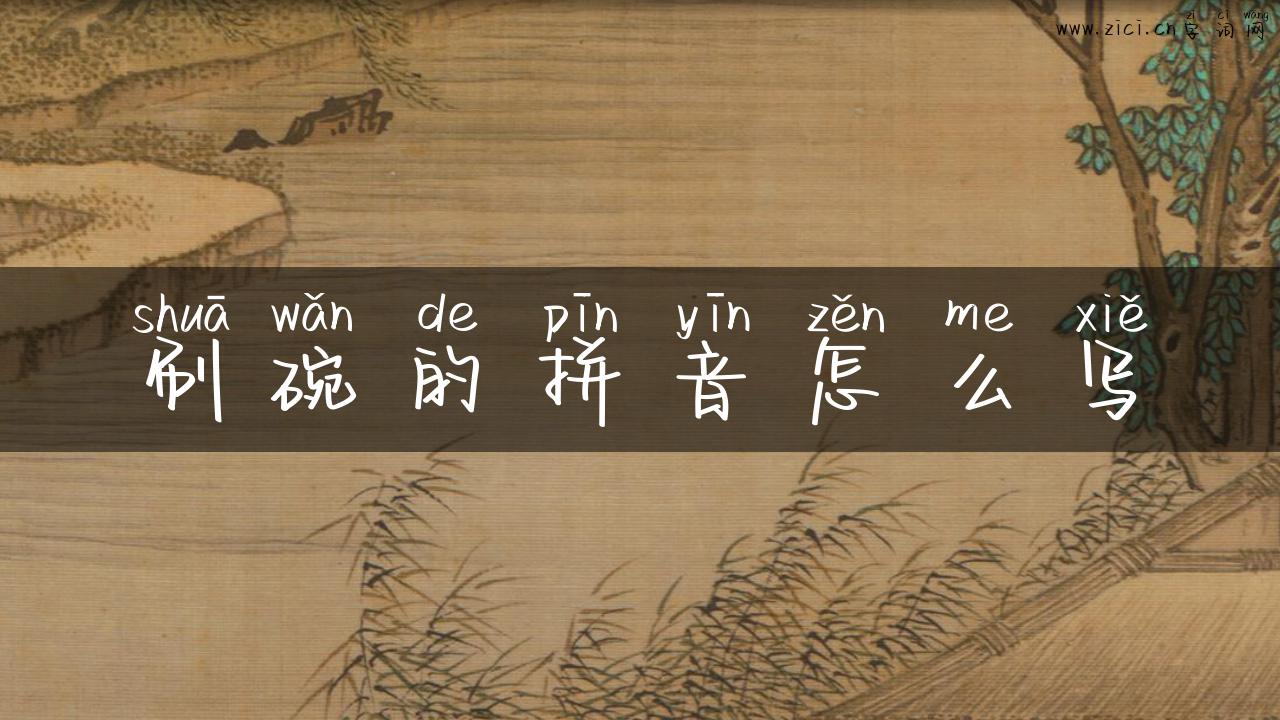 zì cí wǎng
www.zici.cn字词网
shuā wǎn de pīn yīn zěn me xiě
刷碗的拼音怎么写